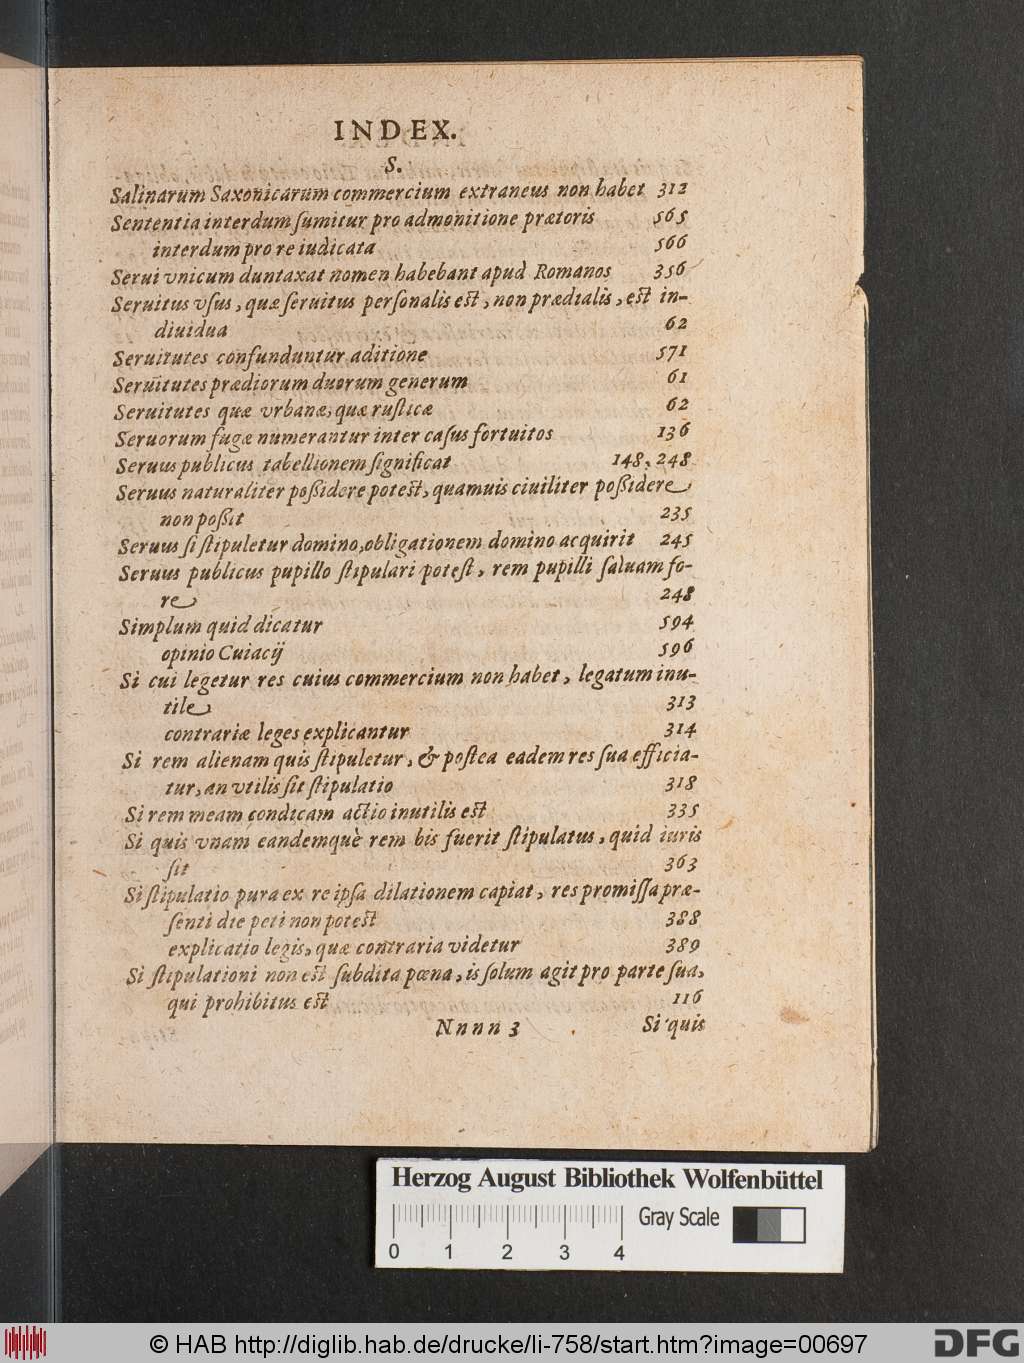 INDEX.
S.
Salinarum Saxonicarum commercium extraneus non habet 312
Sententia interdum ſumitur pro admonitione prætoris 565
interdum pro re iudicata 566
Serui vnicum duntaxat nomen habebant apud Romanos 356
Seruitus vſus, quæ ſeruitus perſonalis est, non prædialis, est in-
diuidua 62
Seruitutes confunduntur aditione 571
Seruitutes prædiorum duorum generum 61
Seruitutes quæ vrbanæ, quæ ruſticæ 62
Seruorum fugæ numerantur inter caſus fortuitos 136
Seruus publicus tabellionem ſignificat 148, 248
Seruus naturaliter poßidere potest, quamuis ciuiliter poßidere
non poßit 235
Seruus ſi ſtipuletur domino, obligationem domino acquirit 245
Seruus publicus pupillo ſtipulari poteſt, rem pupilli ſaluam fo-
re 248
Simplum quid dicatur 594
opinio Cuiacij 596
Si cui legetur res cuius commercium non habet, legatum inu-
tile 313
contrariæ leges explicantur 314
Si rem alienam quis ſtipuletur, & poſtea eadem res ſua efficia-
tur, an vtilis ſit ſtipulatio 318
Si rem meam condicam actio inutilis est 335
Si quis vnam eandemquè rem bis fuerit ſtipulatus, quid iuris
ſit 363
Si ſtipulatio pura ex re ipſa dilationem capiat, res promiſſa præ-
ſenti die peti non potest 388
explicatio legis, quæ contraria videtur 389
Si ſtipulationi non est ſubdita pœna, is ſolum agit pro parte ſua,
qui prohibitus est 116
Nnnn 3 Si quis
Herzog August Bibliothek Wolfenbüttel
Gray Scale
0 1 2 3 4
© HAB http://diglib.hab.de/drucke/li-758/start.htm?image=00697
DFG